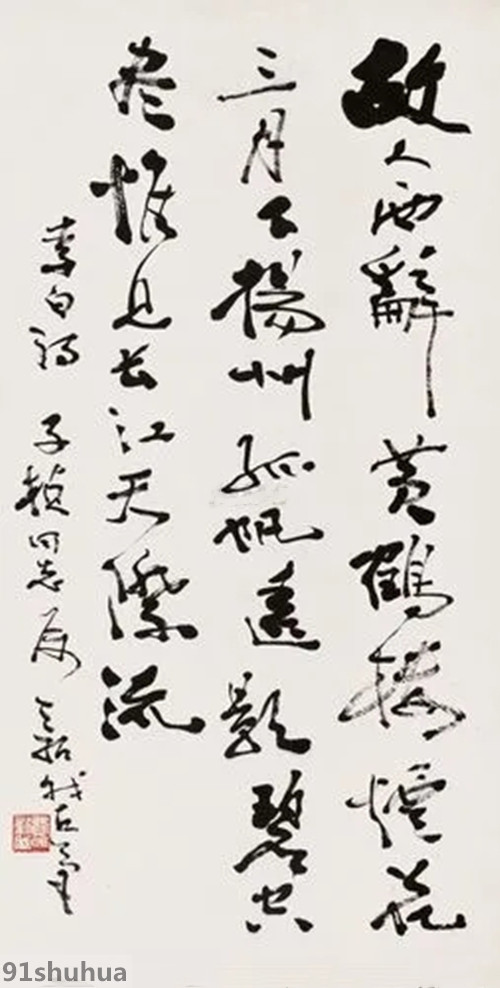 故人西辭黄鶴楼煙花
三月下揚州孤帆遠影碧空
尽惟见长江天際流
李白诗 子楨同志属
91shuhua